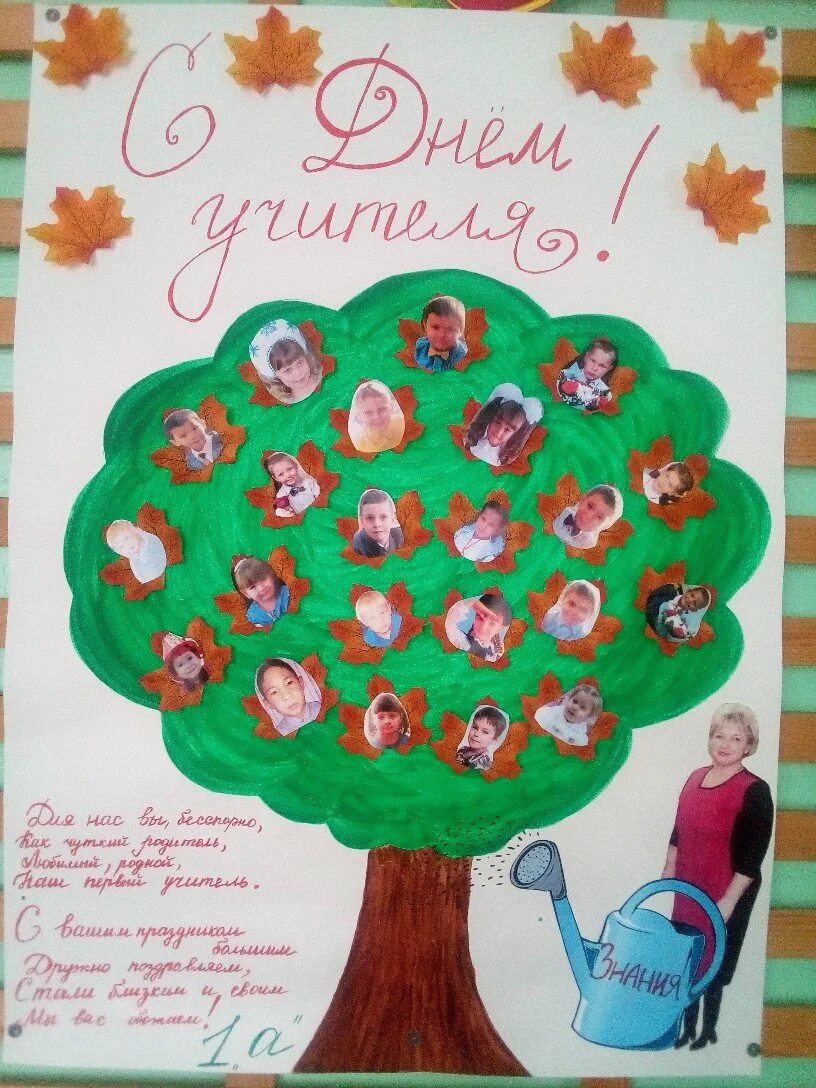 С Днём
учителя!
Для нас вы, бесспорно,
Как чуткий родитель,
Любимый, родной,
Наш первый учитель.
С вашим праздником
большим
Дружно поздравляем,
Стали близким и своим
Мы вас обожаем!
1 "а"
Знания!